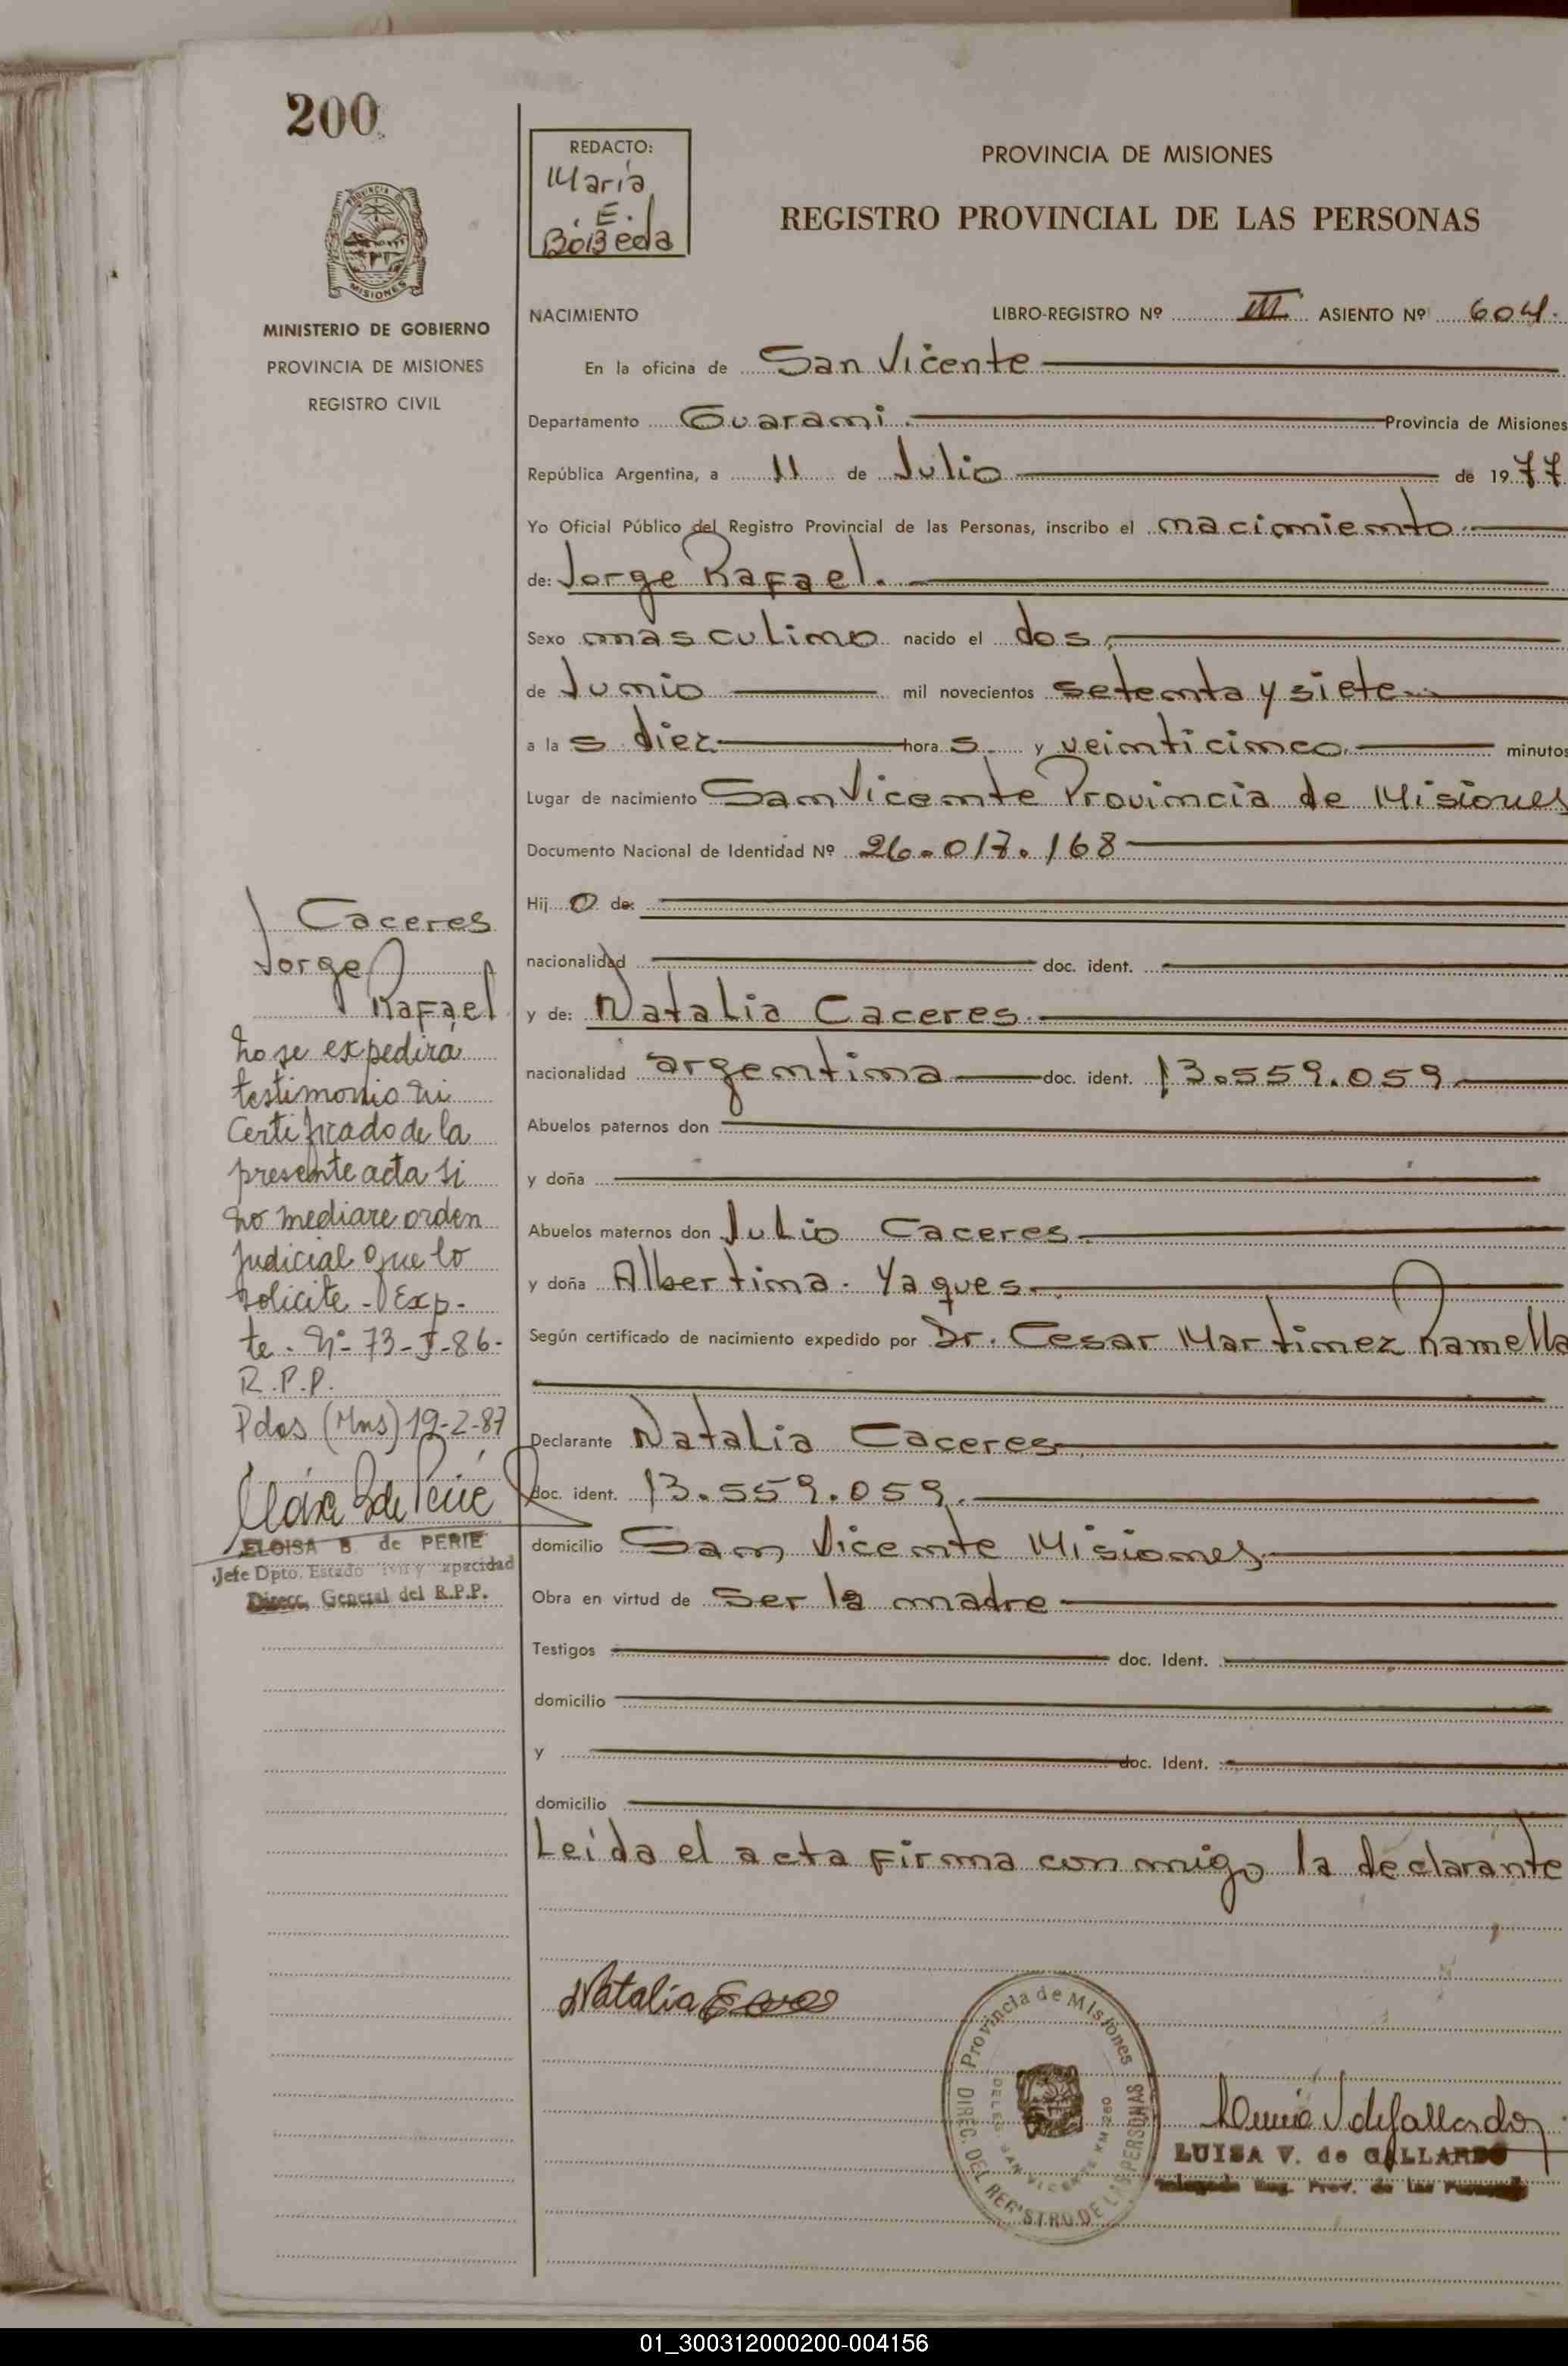 200
PROVINCIA DE
MISIONES
MINISTERIO DE GOBIERNO
PROVINCIA DE MISIONES
REGISTRO CIVIL
Caceres
Jorge
Rafael
No se expedirá
testimonio ni
Certificado de la
presente acta si
no mediare orden
Judicial que lo
solicite - Exp-
te. Nº 73-J-86-
R.P.P.
Pdas (Mns) 19-2-87
ELOISA B de PERIE
Jefe Dpto. Estado
Direcc. General del R.P.P.
REDACTO:
Maria
E.
BóBeda
PROVINCIA DE MISIONES
REGISTRO PROVINCIAL DE LAS PERSONAS
NACIMIENTO LIBRO-REGISTRO Nº III ASIENTO Nº 604.
En la oficina de San Vicente
Departamento Guarani Provincia de Misiones
República Argentina, a 11 de Julio de 1977
Yo Oficial Público del Registro Provincial de las Personas, inscribo el nacimiento
de: Jorge Rafael.
Sexo masculino nacido el dos
de Junio mil novecientos setenta y siete
a la s diez hora s y veinticinco minutos
Lugar de nacimiento San Vicente Provincia de Misiones
Documento Nacional de Identidad Nº 26.017.168
Hij o de:
nacionalidad doc. ident.
y de: Natalia Caceres
nacionalidad argentina doc. ident. 13.559.059
Abuelos paternos don
y doña
Abuelos maternos don Julio Caceres
y doña Albertina Yaques
Según certificado de nacimiento expedido por Dr. Cesar Martinez Ramella
Declarante Natalia Caceres
doc. ident. 13.559.059.
domicilio San Vicente Misiones
Obra en virtud de Ser la madre
Testigos doc. Ident.
domicilio
y doc. Ident.
domicilio
Leida el acta firma conmigo la declarante
Natalia
Provincia de Misiones
DIREC. DEL REGISTRO DE LAS PERSONAS
DELEG. SAN VICENTE KM 260
LUISA V. de GALLARDO
Reg. Prov. de las
01_300312000200-004156